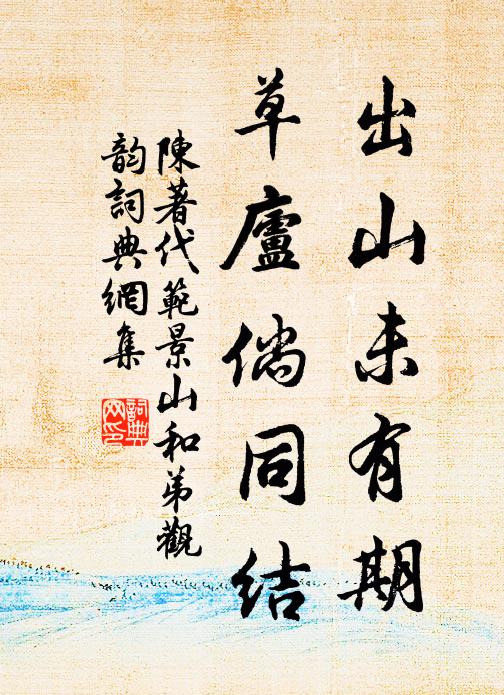 出山未有期
草廬倘同結
陳著代範景山和弟觀
韵詞典網集
詞典网印